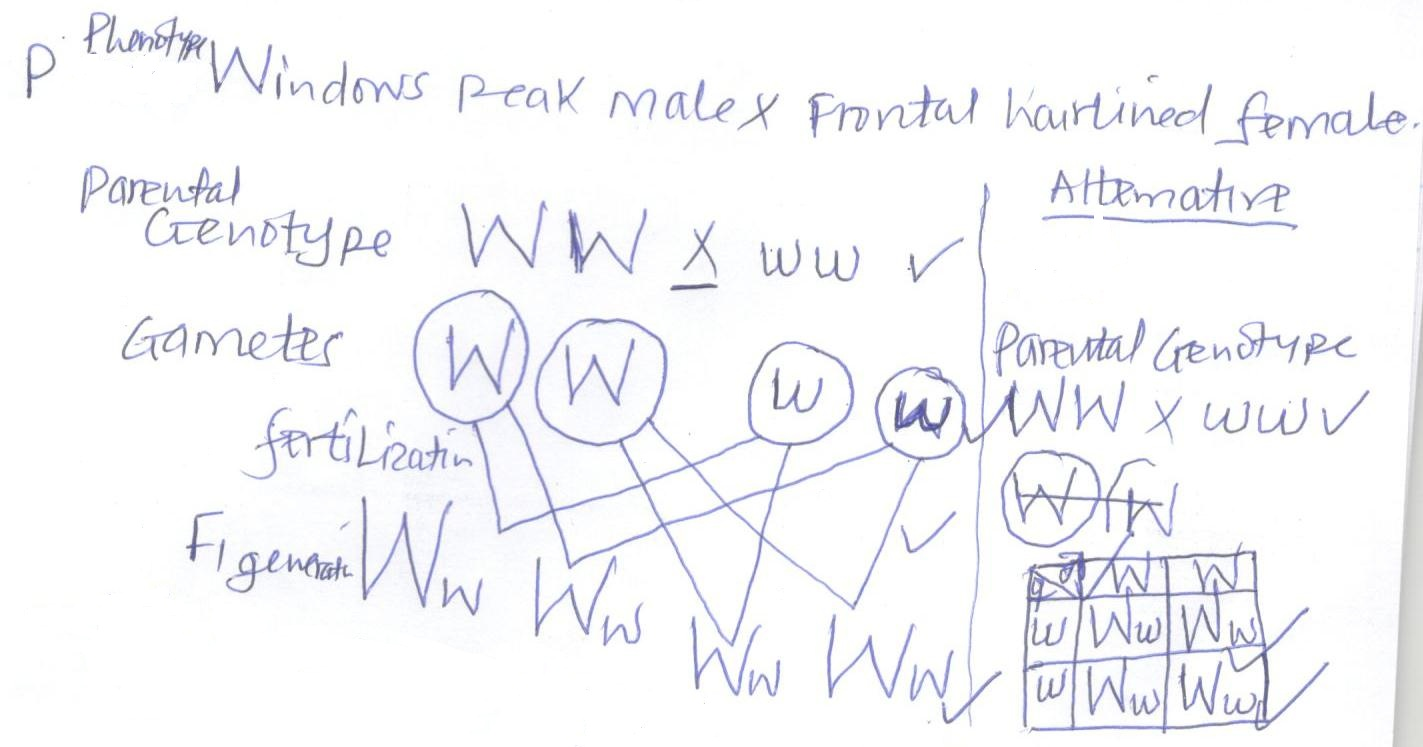 P Phenotype Windows peak male x Frontal hairlined female.
Parental
Genotype WW X ww ✓
Gametes W W w w
fertilizatin
F1 generatn Ww Ww Ww Ww ✓
Alternative
Parental Genotype
✓ WW x ww ✓
W W
♀ ♂ W W
w Ww Ww ✓
w Ww Ww ✓